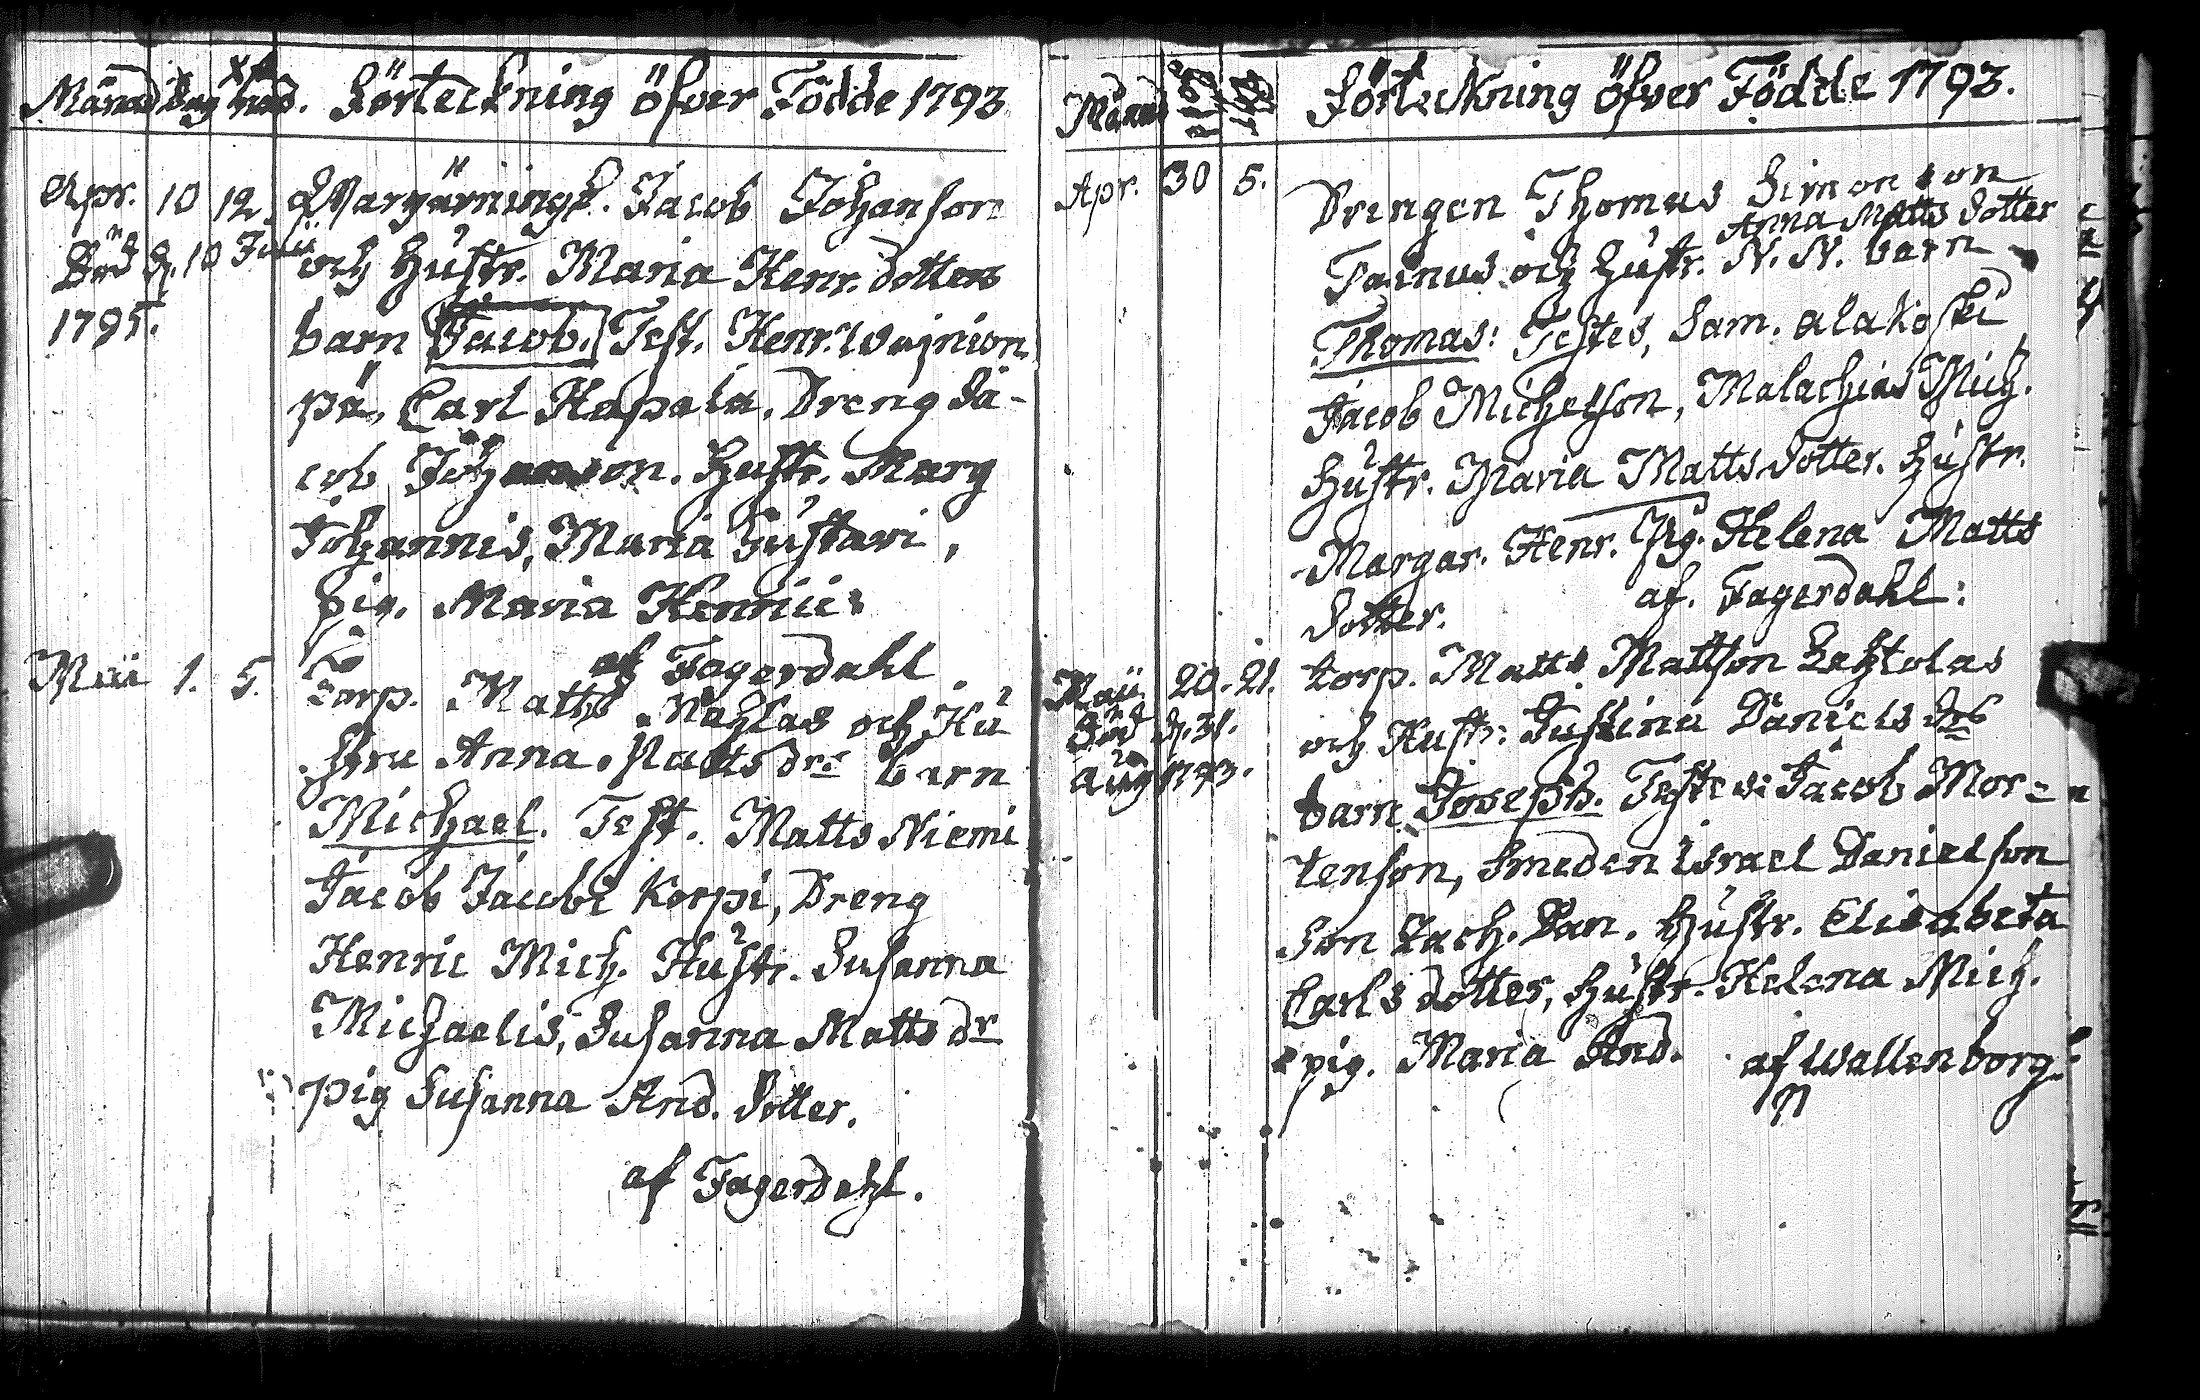 Månad Dag Xstnad. Förteckning öfver Födde 1793
Apr. 10 12. Jacob Johanson
Död d. 10 Julii och Hustr. Maria Henr. dotters
1795. barn Jacob. Test. Henr. Wainion
pä, Carl Hapala, Dreng Ja-
cob Johanson. Hustr. Marg
Johannis, Maria Gustavi,
pig. Maria Henrici:
af Fagerdahl
Maii 1. 5. Torp. Matts och Hu
stru Anna Matts drs barn
Michael. Test. Matts Niemi
Jacob Jacobi Korpi, Dreng
Henric Mich. Hustr. Susanna
Michaelis, Susanna Matts dr
pig Susanna And. Dotter.
af Fagerdahl.
Månad Förteckning öfver Födde 1793.
Apr. 30 5. Drengen Thomas Simonson
Anna Matts Dotter
och Hustr. N. N. barn
Thomas: Testes, Sam. Alakoski
Jacob Michelson, Malachias Mich.
Hustr. Maria Matts Dotter. Hustr.
Margar. Henr. Pig. Helena Matts
Dotter. af. Fagerdahl:
Maii 20. 21. torp. Matts Mattson Lahtolas
Död d. 31. och Hustr: Justina Daniels drs
Aug 1793. barn Joseph. Testes: Jacob Mor-
tenson, Smeden Israel Danielson
Son Zach. Dan. Hustr. Elisabeta
Carls dotter, Hustr. Helena Mich.
pig. Maria And. af Wallenborg.